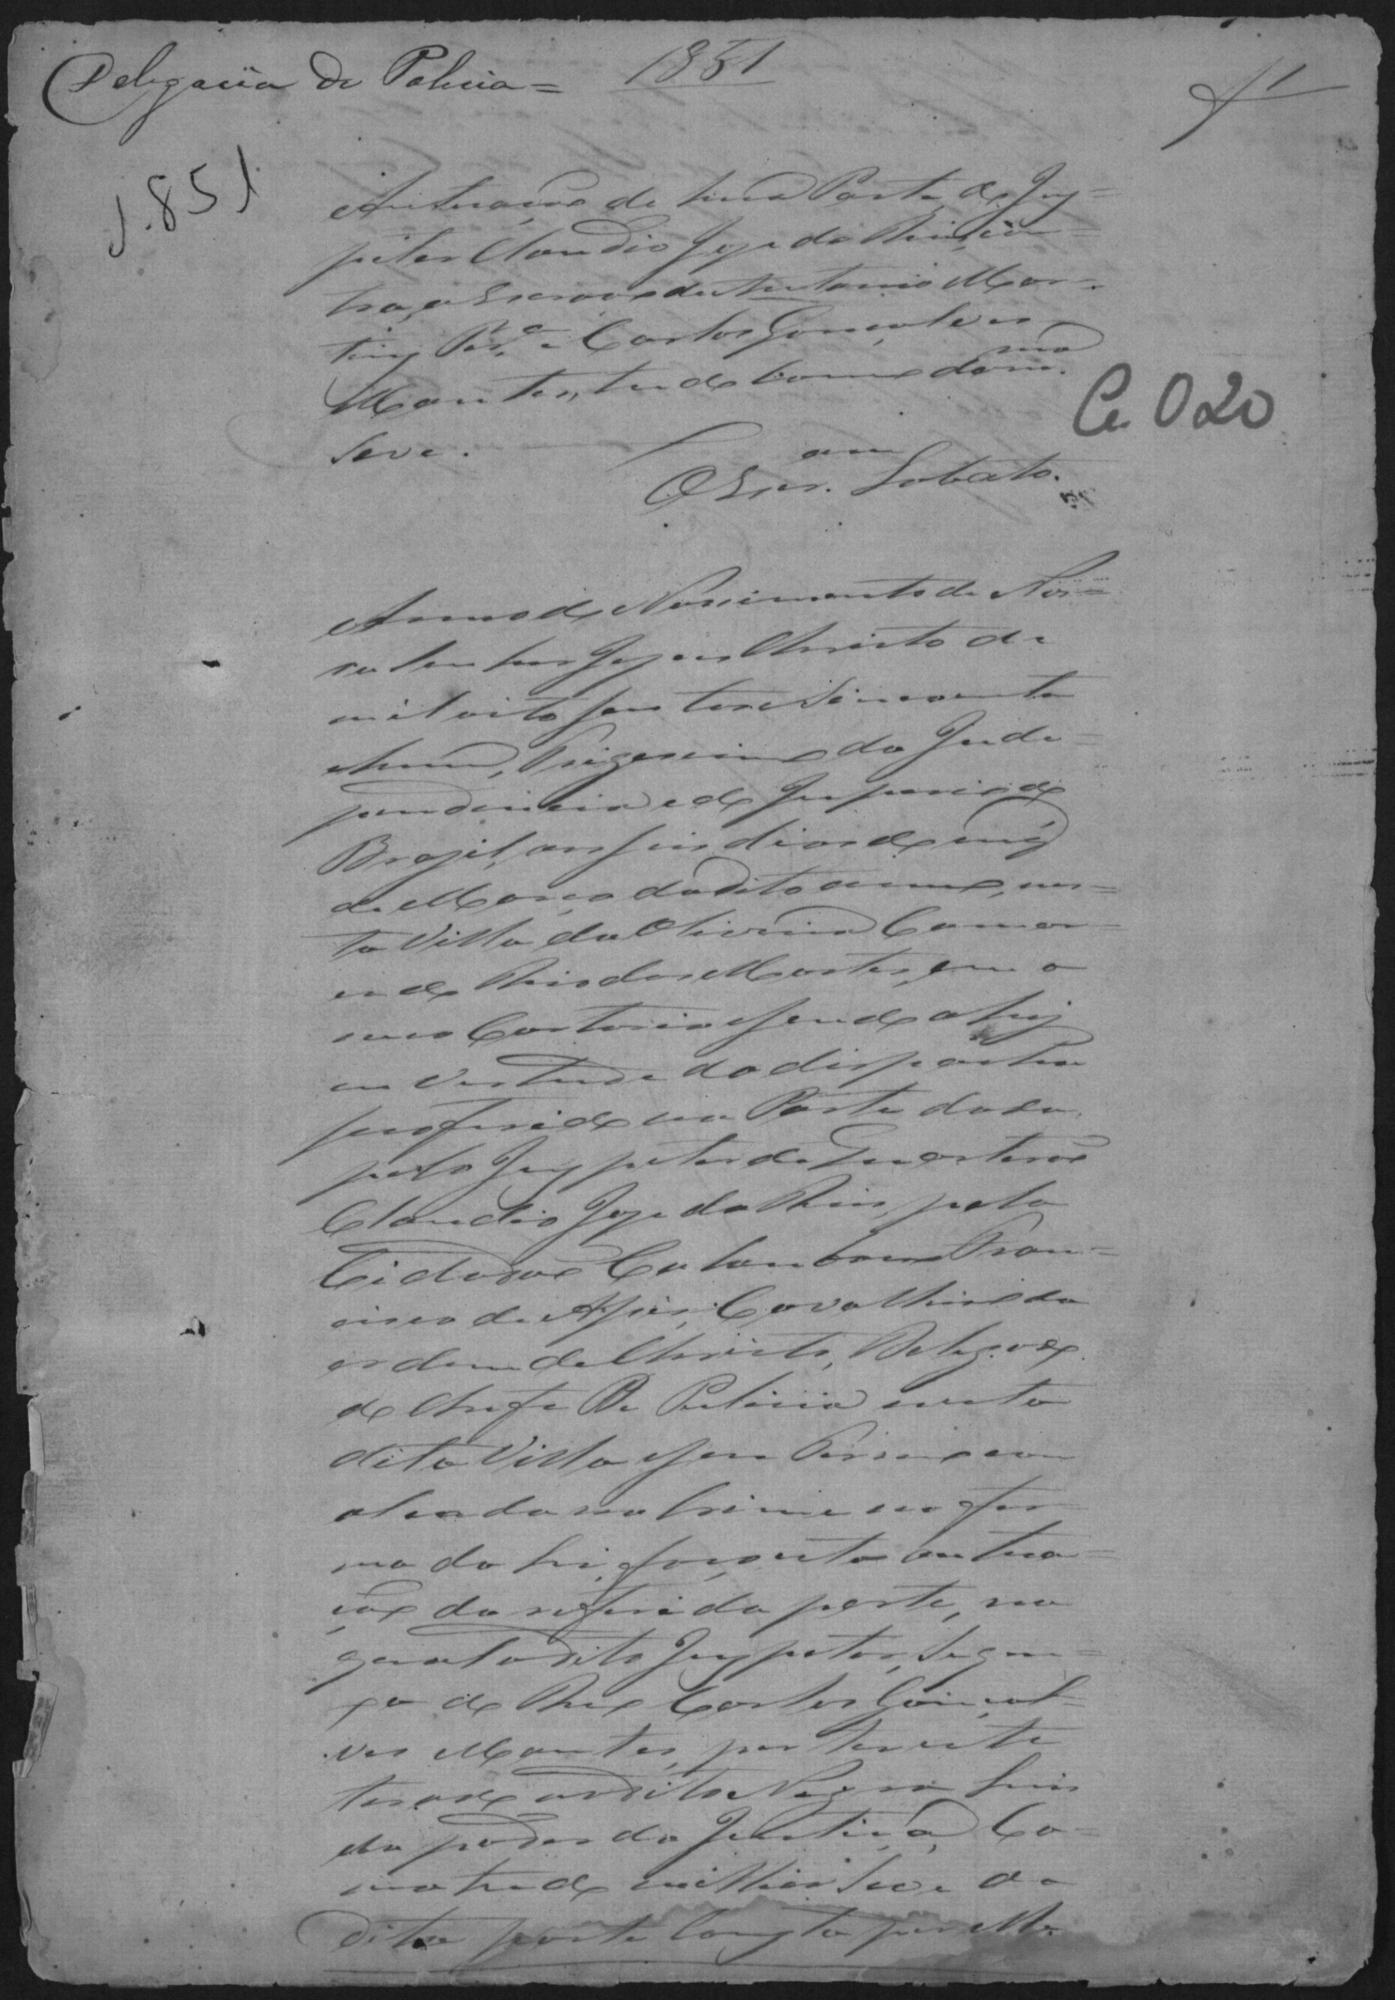 Delegacia de Policia = 1851
1
1.851
Autuação de huma Parte do Ins=
petor Claudio Joze da Reis, con=
tra o Escravo de Antonio Mar=
tins Per.ª e Carlos Gonçalves
Mantes, tudo como
Ce 020
se ve.
O Escr.am Lobato.
Anno do Nascimento de Nos=
so Senhor Jezus Christo de
mil oito sentos e Sincoenta
e hum, Trigesimo da Inde=
pendencia e do Imperio do
Brazil, aos seis dias do mez
de Março do dito anno, nes=
ta Villa da Oliveira Comar=
ca do Rio das Mortes, em o
meo Cartorio sendo ahi
em vertude do dispacho
proferido na Parte dada
pelo Inspetor de Quarteirão
Claudio Joze da Reis, pelo
Cidadão Fran=
cisco de Assis, Cavalheiro da
ordem de Christo, Delegado
do Chefe de Policia nesta
dita Villa e seo Termo com
alçada no Crime na for
ma da lei, faço esta autua=
ção da referida parte, na
qual o dito Inspetor, se quei=
xa do Reo Carlos Gonçal=
ves Mantes, por ter este
tirado o dito Negro
do poder da Justiça, Co=
mo tudo milhor se ve da
dita parte